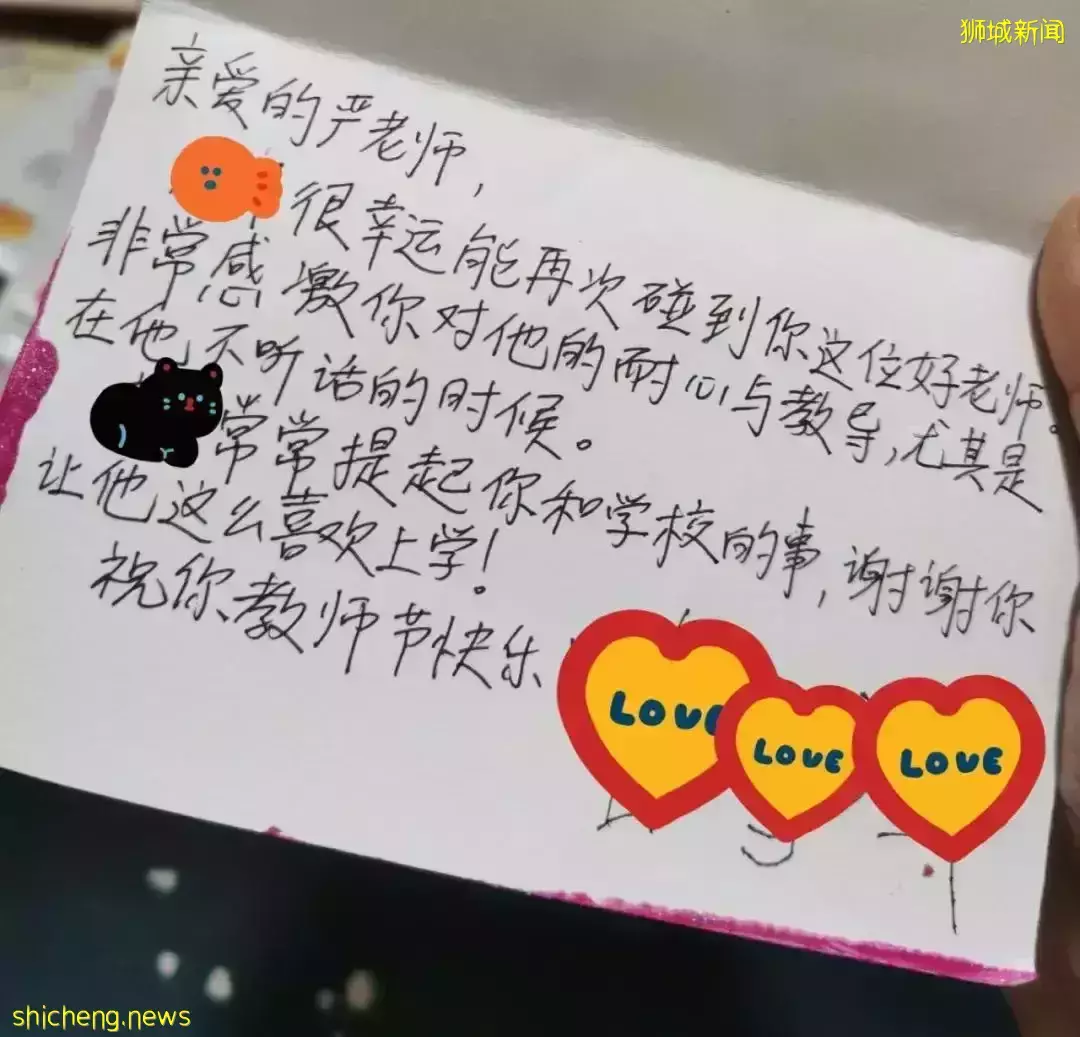 狮城新闻
亲爱的严老师,
很幸运能再次碰到你这位好老师。
非常感激你对他的耐心与教导,尤其是
在他不听话的时候。
常常提起你和学校的事,谢谢你
让他这么喜欢上学!
祝你教师节快乐
LOVE
LOVE
LOVE
shicheng.news